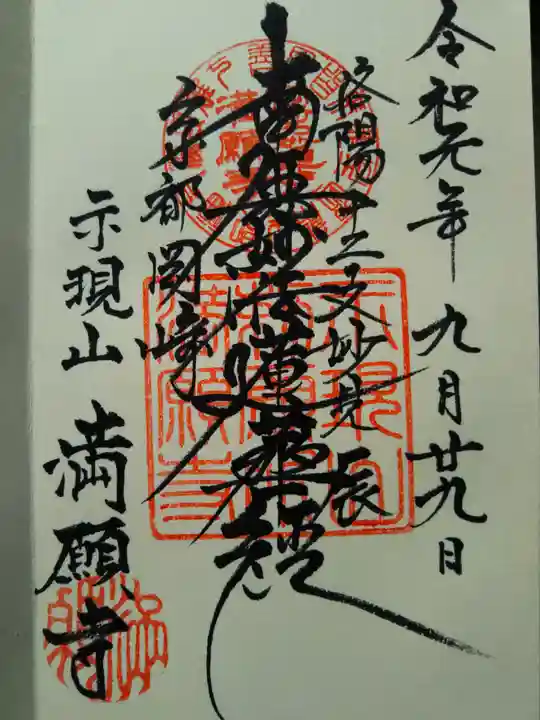 令和元年九月廿九日
洛陽十二支妙見 辰
南無妙法蓮華経
京都岡崎
示現山 満願寺
満願寺